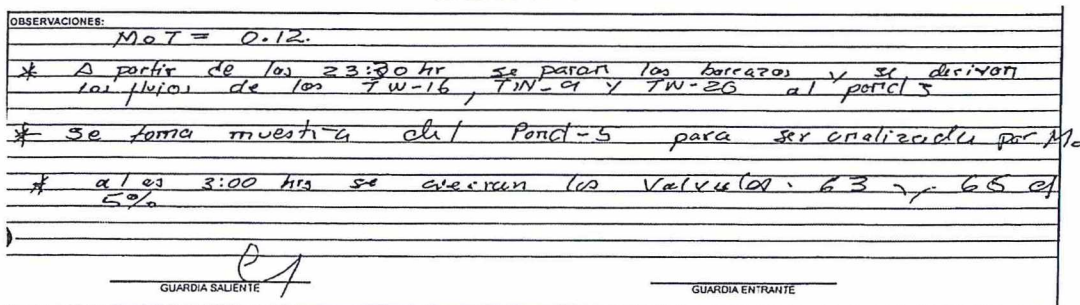 OBSERVACIONES:
MoT = 0.12.
* A partir de las 23:30 hr se paran las barcazas y se derivan
los flujos de los TW-16, TW-9 y TW-26 al pond 5
* se toma muestra del Pond-5 para ser analizada por Mo
* a las 3:00 hrs se las Valvulas 63 y 65 al
5%
GUARDIA SALIENTE GUARDIA ENTRANTE